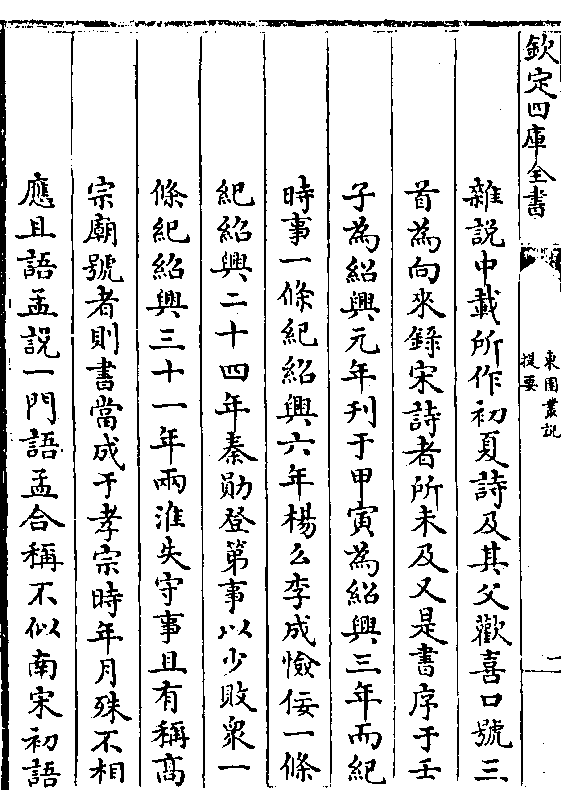 欽定四庫全書
東園叢説
提要
一
雜説中載所作初夏詩及其父歡喜口號三
首為向來録宋詩者所未及又是書序于壬
子為紹興元年刋于甲寅為紹興三年而紀
時事一條紀紹興六年楊么李成憸佞一條
紀紹興二十四年秦勛登第事以少敗衆一
條紀紹興三十一年兩淮失守事且有稱髙
宗廟號者則書當成于孝宗時年月殊不相
應且語孟説一門語孟合稱不似南宋初語